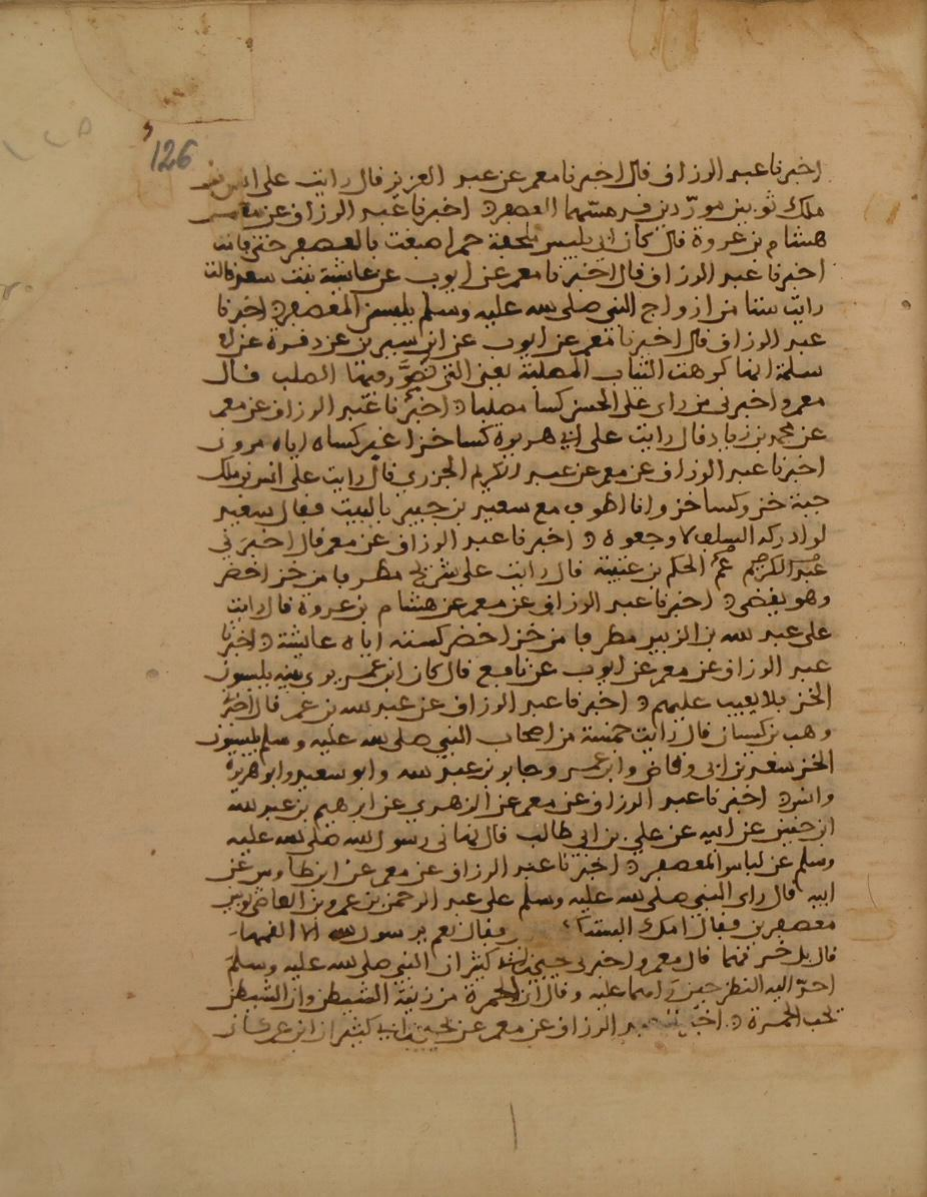 126
اخبرنا عبد الرزاق قال اخبرنا معمر عن عبد العزيز قال رايت على انس بن
ملك ثوبين موردين قد مسهما العصفر اخبرنا عبد الرزاق عن معمر
هشام بن عروة قال كان ابي يلبس ملحفة حمرا صبغت بالعصفر حتى مات
اخبرنا عبد الرزاق قال اخبرنا معمر عن ايوب عن عايشة بنت سعد قالت
رايت ستا من ازواج النبي صلى الله عليه وسلم يلبسن المعصفر اخبرنا
عبد الرزاق قال اخبرنا معمر عن ايوب عن ابن سيرين عن دفرة عن ام
سلمة انها كرهت الثياب المصلبة يعني التي تصور فيها الصلب قال
معمر واخبرني من راى على الحسن كسا مصلبا اخبرنا عبد الرزاق عن معمر
عن محمد بن زياد قال رايت على ابي هريرة كسا خز اغبر كساه اياه مروان
اخبرنا عبد الرزاق عن معمر عن عبد الكريم الجزري قال رايت على انس بن ملك
جبة خز وكسا خز وانا اطوف مع سعيد بن جبير بالبيت فقال سعيد
لو ادركه السلف لاوجعوه اخبرنا عبد الرزاق عن معمر قال اخبرني
عبد الكريم عن الحكم بن عتيبة قال رايت على شريح مطرفا من خز اخضر
وهو يقضي اخبرنا عبد الرزاق عن معمر عن هشام بن عروة قال رايت
على عبد الله بن الزبير مطرفا من خز اخضر كسته اياه عايشة اخبرنا
عبد الرزاق عن معمر عن ايوب عن نافع قال كان ابن عمر يرى بنيه يلبسون
الخز فلا يعيب عليهم اخبرنا عبد الرزاق عن عبد الله بن عمر قال اخبرني
وهب بن كيسان قال رايت خمسة من اصحاب النبي صلى الله عليه وسلم يلبسون
الخز سعد بن ابي وقاص وابن عمر وجابر بن عبد الله وابو سعيد وابو هريرة
وانس اخبرنا عبد الرزاق عن معمر عن الزهري عن ابرهيم بن عبد الله
ابن حنين عن ابيه عن علي بن ابي طالب قال نهاني رسول الله صلى الله عليه
وسلم عن لباس المعصفر اخبرنا عبد الرزاق عن معمر عن ابن طاوس عن
ابيه قال راى النبي صلى الله عليه وسلم على عبد الرحمن بن عمرو بن العاص ثوبين
معصفرين فقال امك البستك فقال نعم يرسول الله الا القيهما
قال بل حرقهما قال معمر واخبرني يحيى بن ابي كثير ان النبي صلى الله عليه وسلم
احد اليه النظر حين راهما عليه وقال ان الحمرة من زينة الشيطن وان الشيطن
يحب الحمرة اخبرنا عبد الرزاق عن معمر عن يحيى بن ابي كثير ان ابن عمر كان